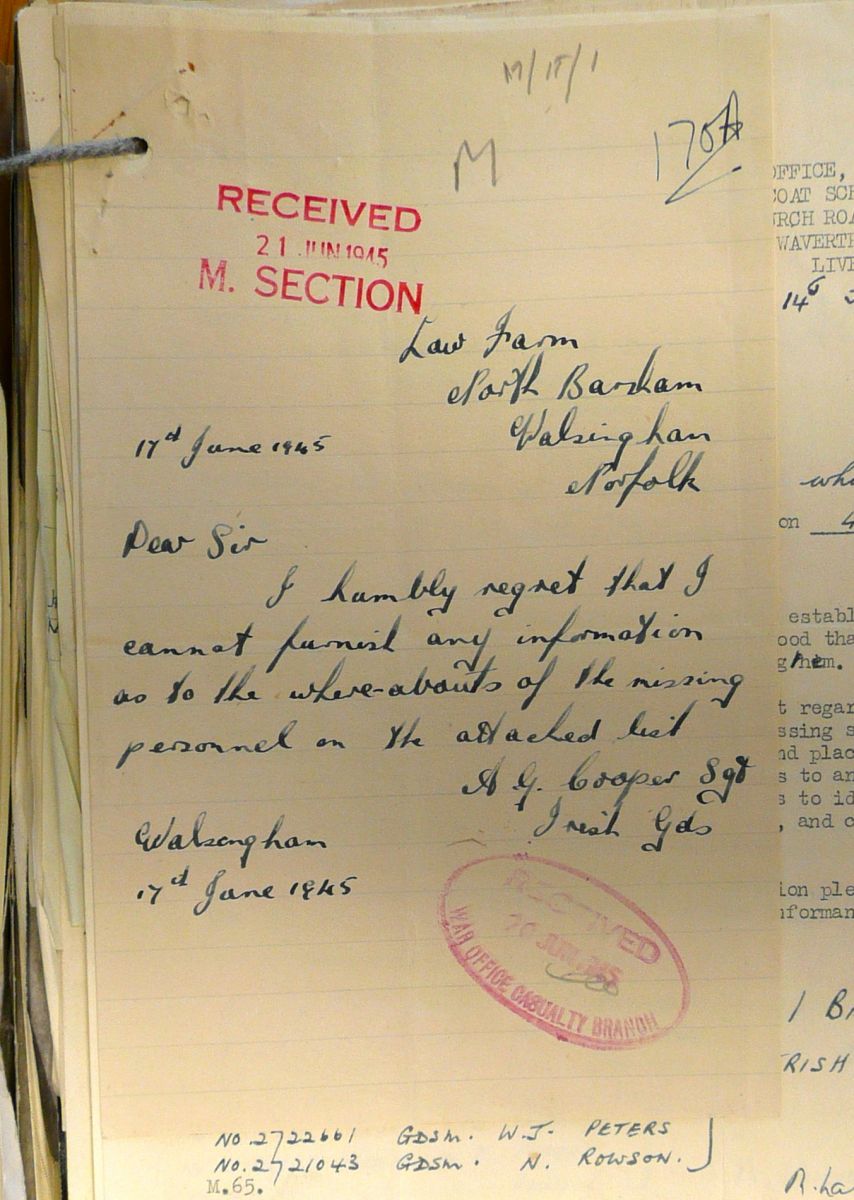 M/15/1
170A
M
RECEIVED
21 JUN 1945
M. SECTION
Law Farm
North Barsham
Walsingham
Norfolk
17d June 1945
Dear Sir
I humbly regret that I
cannot furnish any information
as to the where-abouts of the missing
personnel on the attached list
A G. Cooper Sgt
Irish Gds
Walsingham
17d June 1945
RECEIVED
20 JUN 1945
WAR OFFICE CASUALTY BRANCH
NO. 2722661 GDSM. W.J. PETERS
NO. 2721043 GDSM. N. ROWSON.
M.65.
OFFICE,
COAT SCH
URCH ROA
WAVERTR
LIVE
14
whi
on 4
establ
ood tha
g them.
t regar
ssing s
nd plac
s to an
s to id
, and c
ion ple
nforman
1 BA
RISH